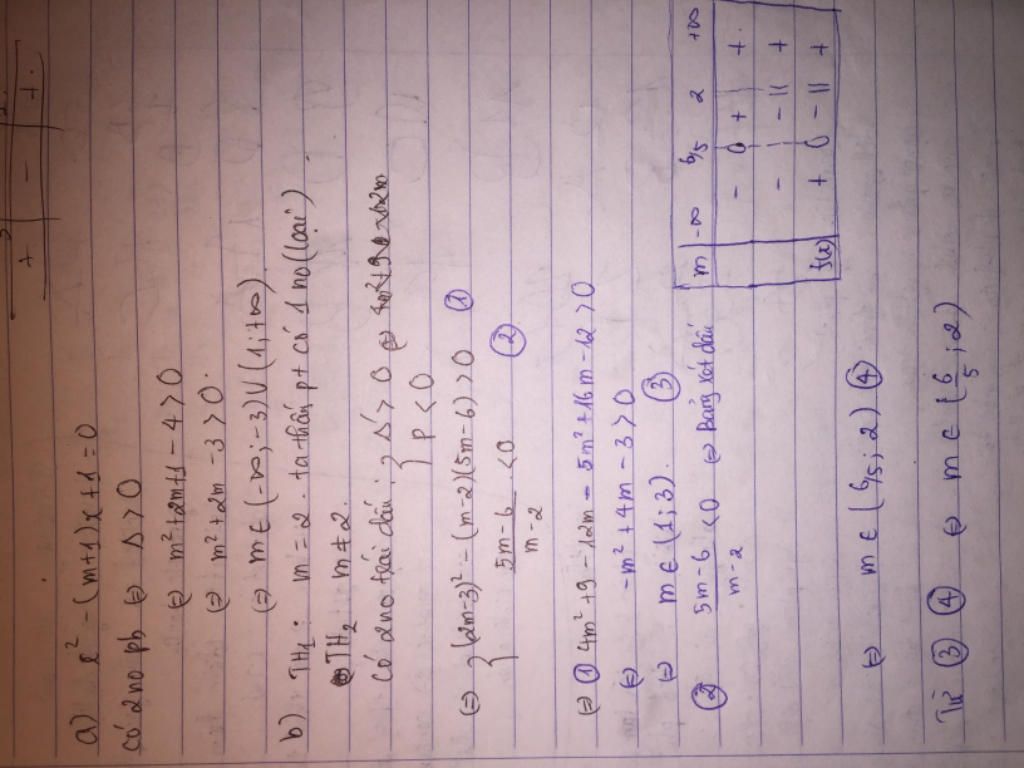 + − +
a) x² − (m+1)x + 1 = 0
có 2 no pb ⇔ Δ > 0
⇔ m² + 2m + 1 − 4 > 0
⇔ m² + 2m − 3 > 0.
⇔ m ∈ (−∞; −3) ∪ (1; +∞)
b) TH₁: m = 2. ta thấy pt có 1 no (loại)
TH₂ m ≠ 2.
Có 2 no trái dấu: { Δ' > 0 ⇔
P < 0
⇔ { (2m−3)² − (m−2)(5m−6) > 0 ①
5m−6 / m−2 < 0 ②
⇔ ① 4m² + 9 − 12m − 5m² + 16m − 12 > 0
⇔ −m² + 4m − 3 > 0
⇔ m ∈ (1; 3). ③
② 5m−6 / m−2 < 0 ⇔ Bảng xét dấu
m −∞ 6/5 2 +∞
− 0 + | +
− | − || +
f(x) + 0 − || +
⇔ m ∈ (6/5; 2) ④
Từ ③ ④ ⇔ m ∈ (6/5; 2)